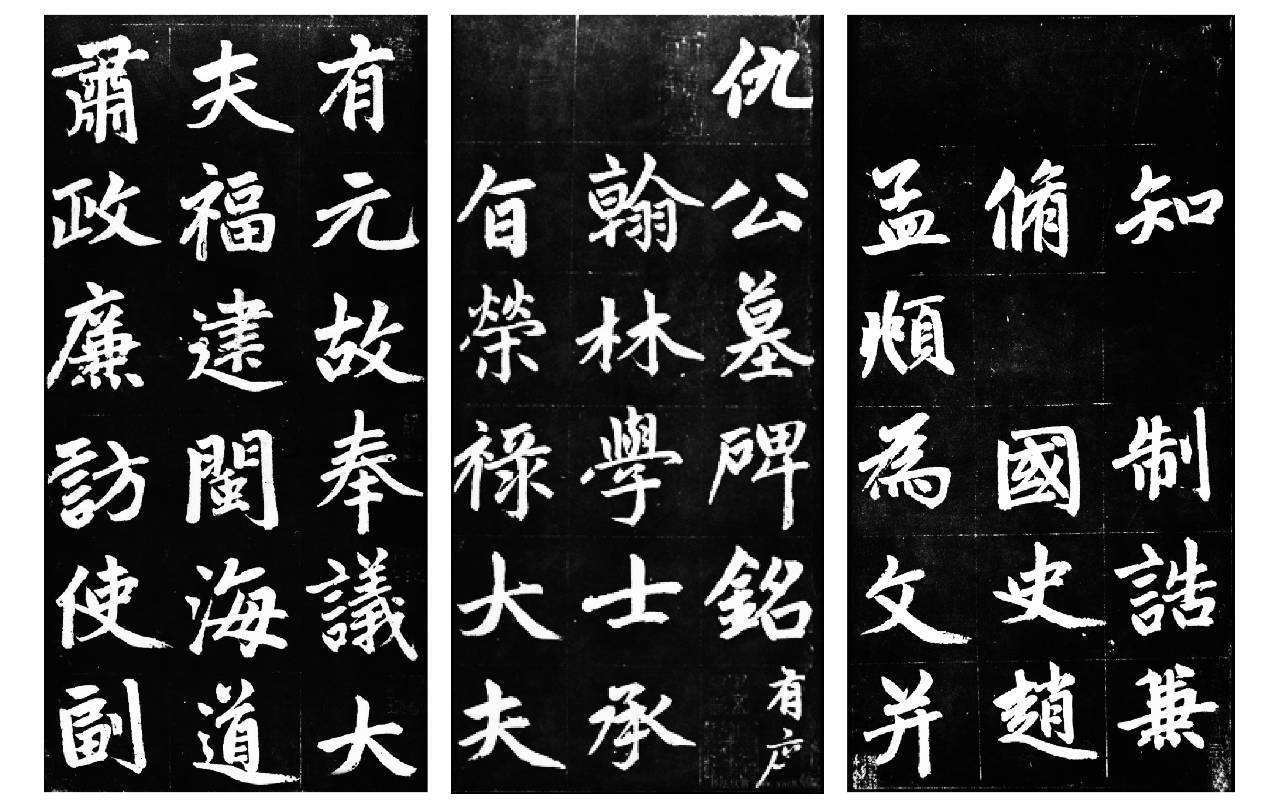 有元故奉議大
夫福建閩海道
肅政廉訪使副
仇公墓碑銘有序
翰林學士承
旨榮祿大夫
知制誥兼
脩國史趙
孟頫為文并